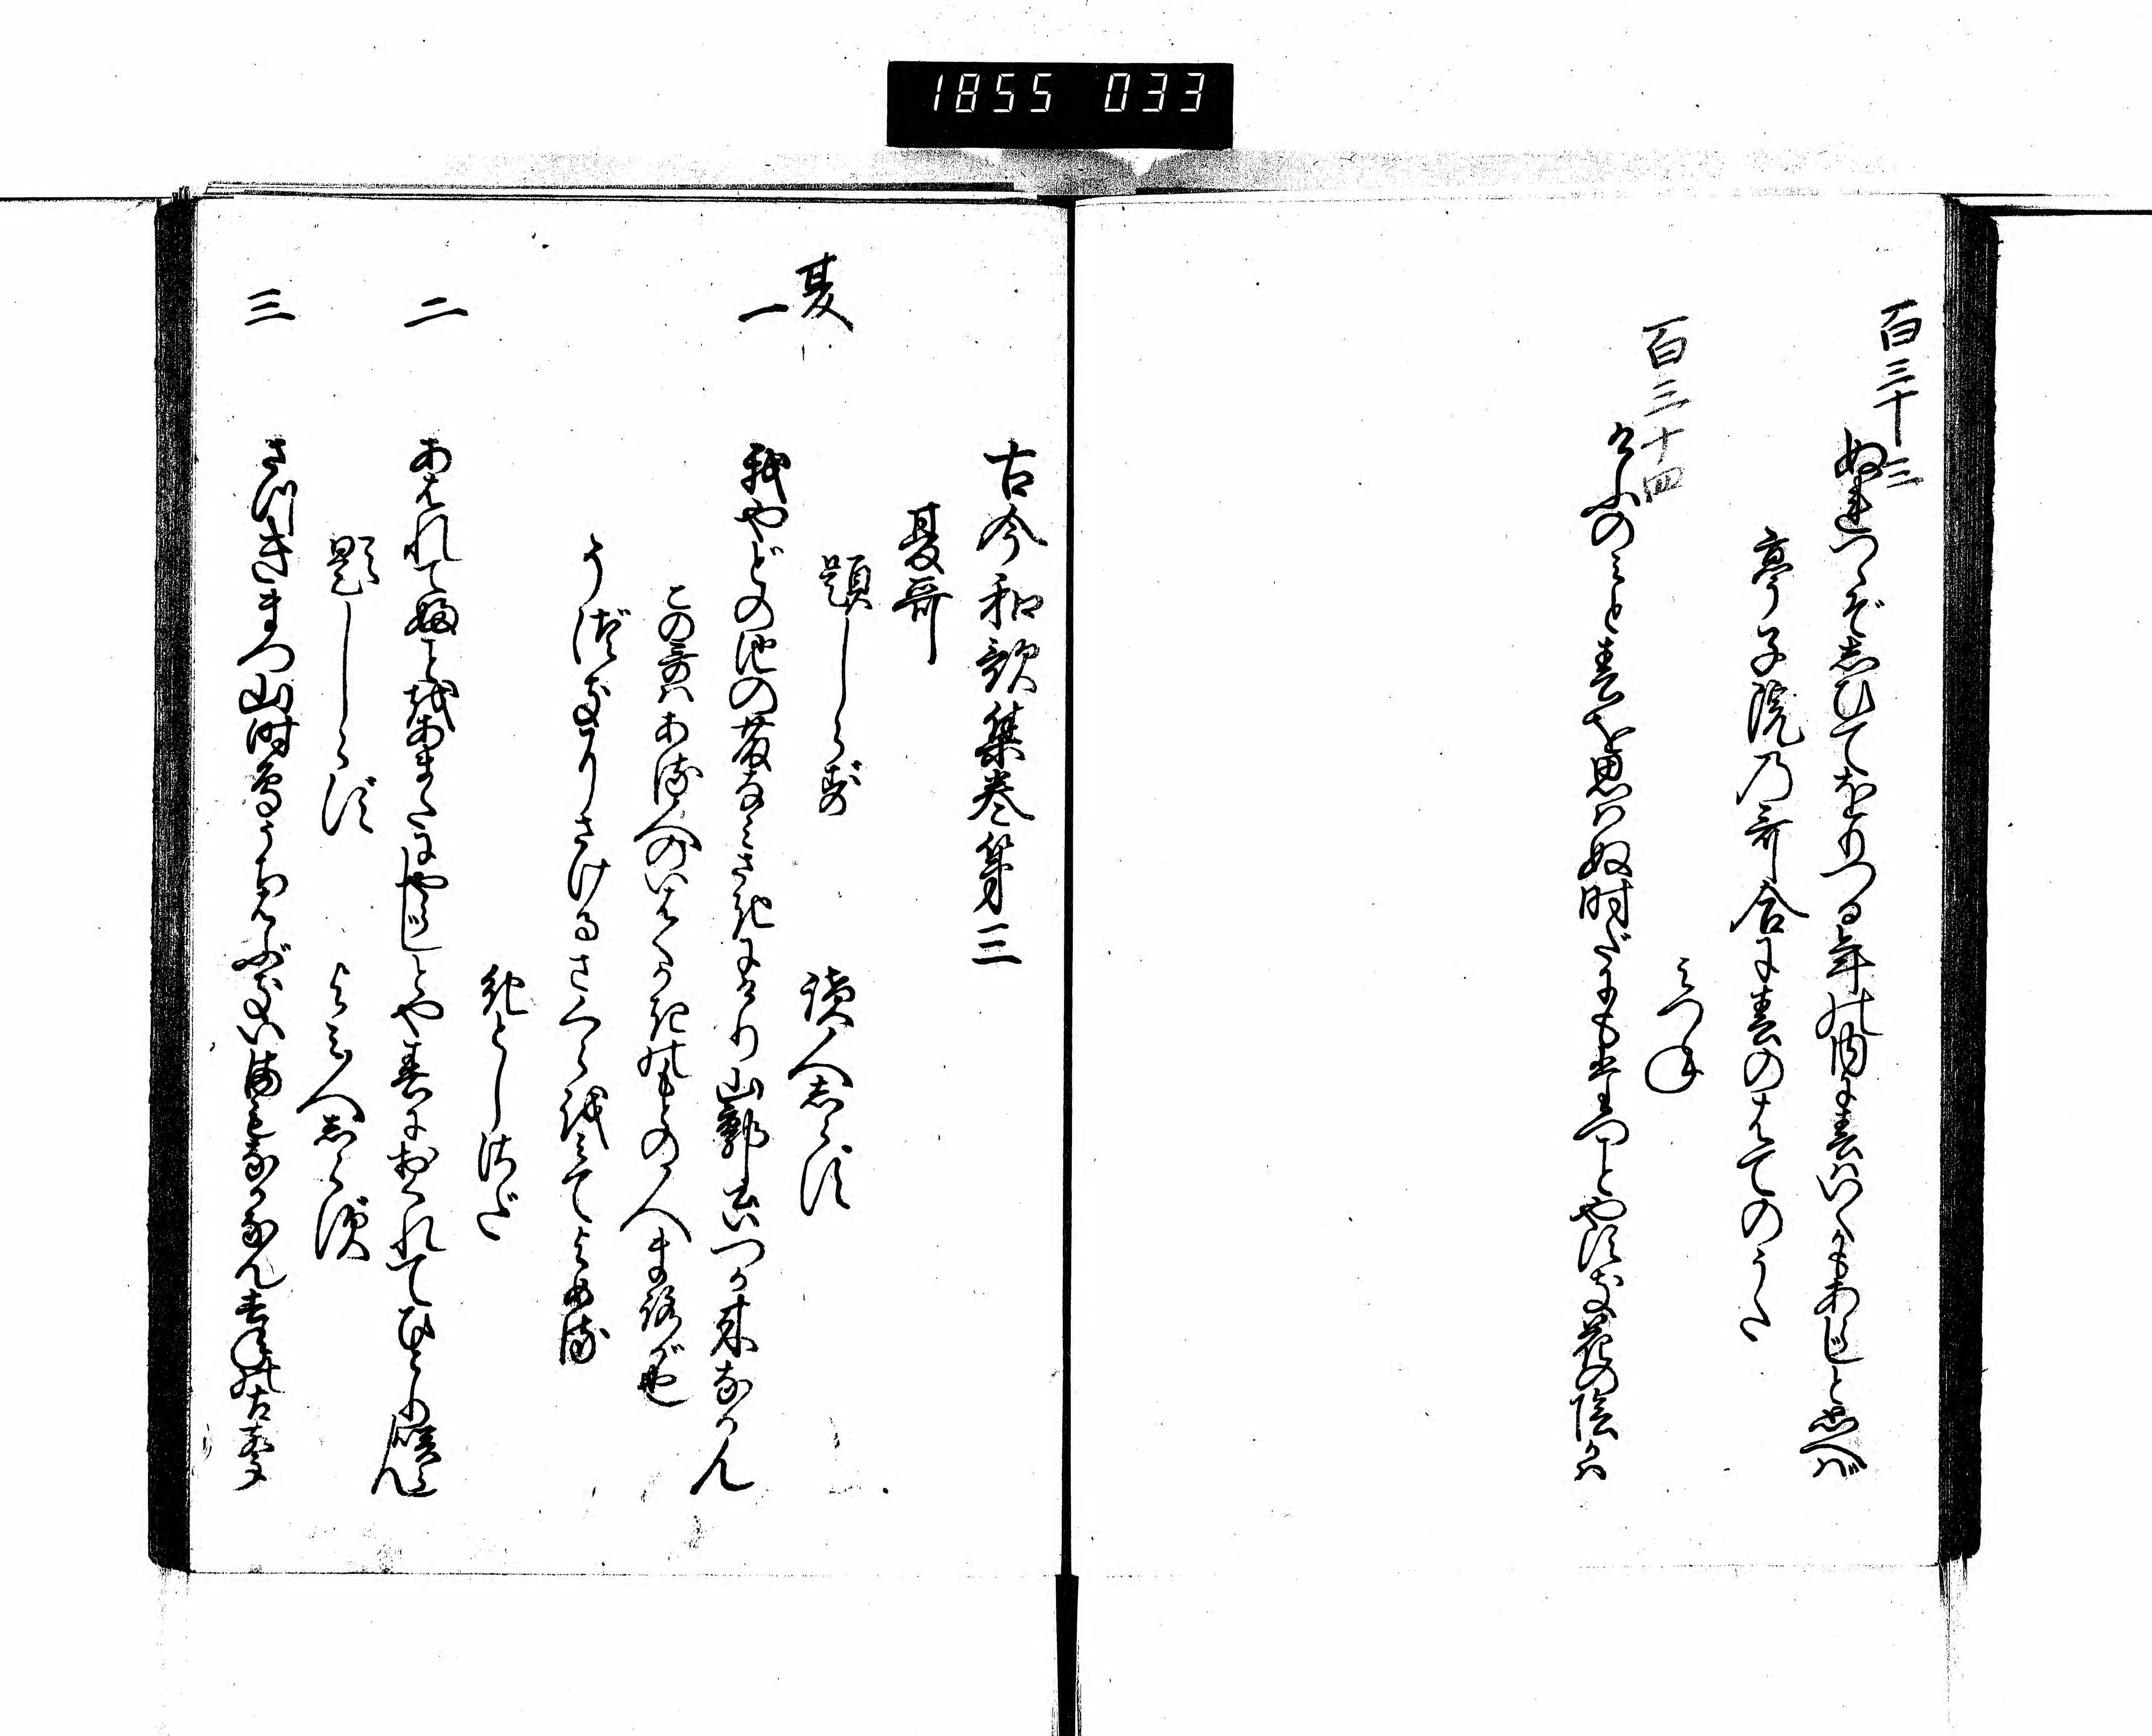 1855 033
百三十三
ぬれつゝぞしひてをりつる年の内に春はいくかもあらじと思へば
亭子院乃哥合に春のはてのうた
みつね
百三十四
けふのみと春を思はぬ時だにもたつことやすき花の陰かは
古今和歌集巻第三
夏哥
題しらず
讀人しらす
夏
一
我やどの池の藤なみさきにけり山郭公いつか来なかん
この哥はある人のいはくかきのもとの人まろが也
うづきにさけるさくらをみてよめる
紀としさだ
二
あはれてふことをあまたにやらじとや春におくれてひとり咲らん
題しらず
よみ人しらず
三
さつきまつ山時鳥うちはぶきいまもなかなんこぞの古聲